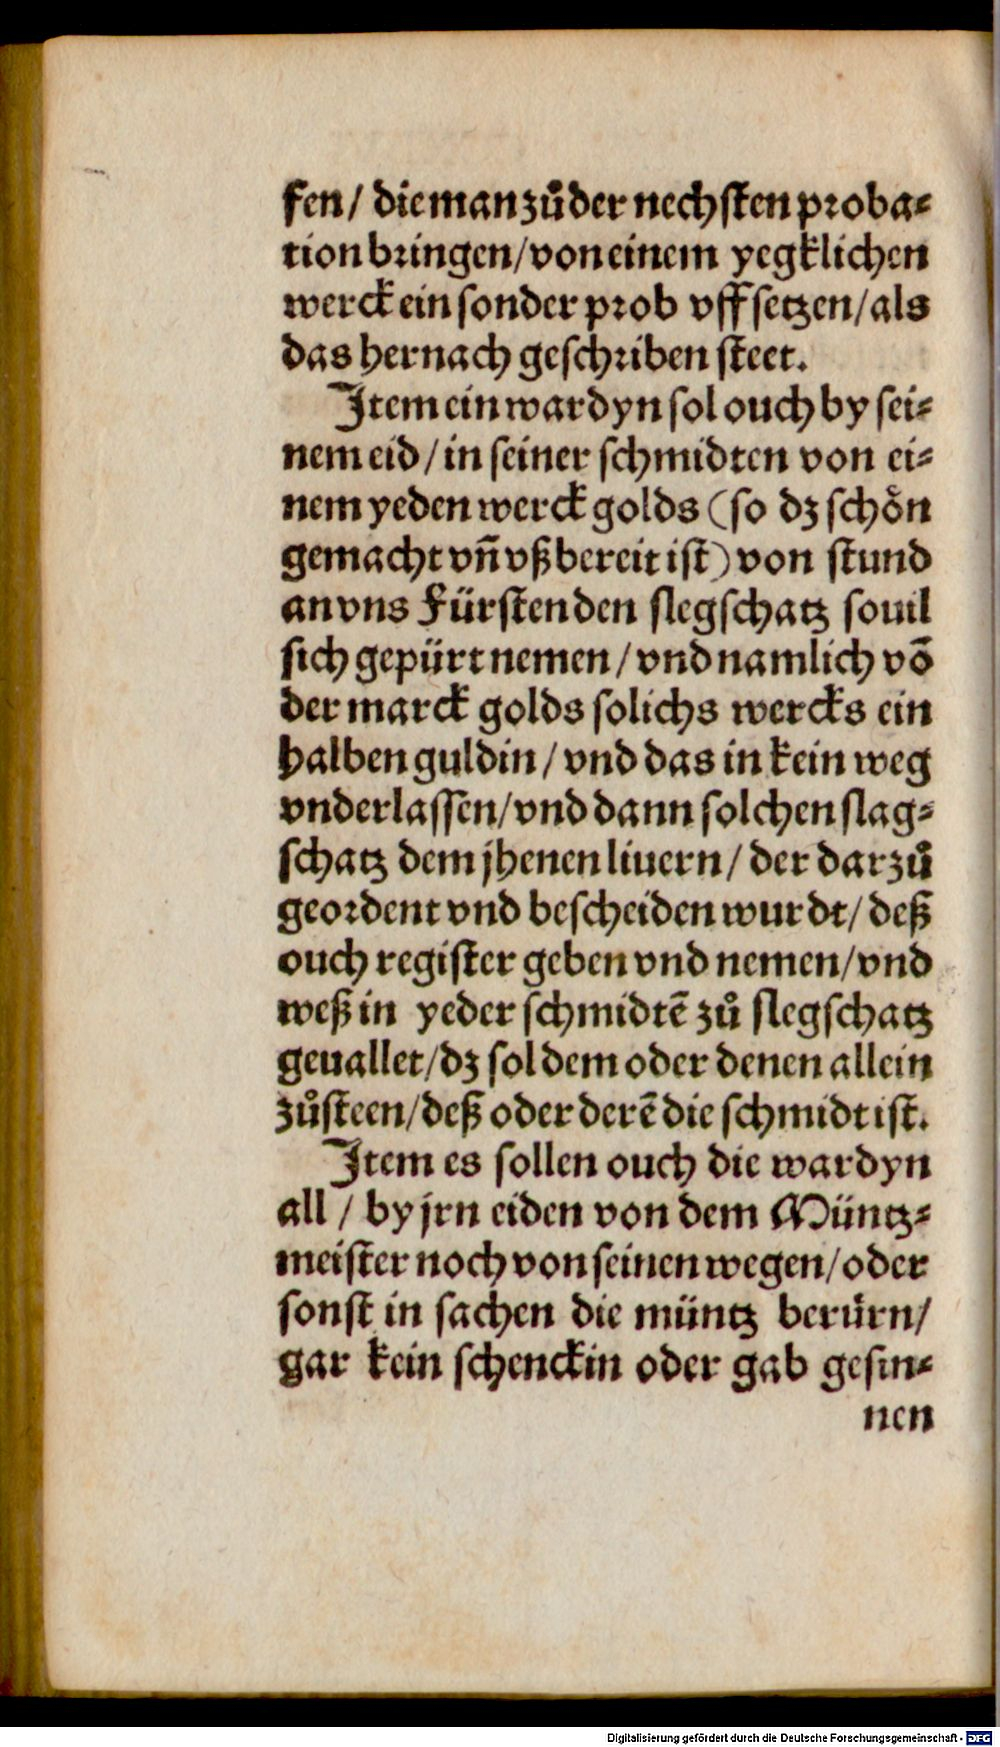 fen/ die man zů der nechsten proba⸗
tion bringen/ von einem yegklichen
werck ein sonder prob vff setzen/ als
das hernach geschriben steet.
Item ein wardyn sol ouch by sei⸗
nem eid/ in seiner schmidten von ei⸗
nem yeden werck golds (so dz schoͤn
gemacht vñ vßbereit ist) von stund
an vns Fürsten den slegschatz souil
sich gepürt nemen/ vnd namlich võ
der marck golds solichs wercks ein
halben guldin/ vnd das in kein weg
vnderlassen/ vnd dann solchen slag⸗
schatz dem jhenen liuern/ der darzů
geordent vnd bescheiden wurdt/ deß
ouch register geben vnd nemen/ vnd
weß in yeder schmidtẽ zů slegschatz
geuallet/ dz sol dem oder denen allein
zůsteen/ deß oder derẽ die schmidt ist.
Item es sollen ouch die wardyn
all / by jrn eiden von dem Müntz⸗
meister noch von seinen wegen/ oder
sonst in sachen die müntz berůrn/
gar kein schenckin oder gab gesin⸗
nen
Digitalisierung gefördert durch die Deutsche Forschungsgemeinschaft - DFG